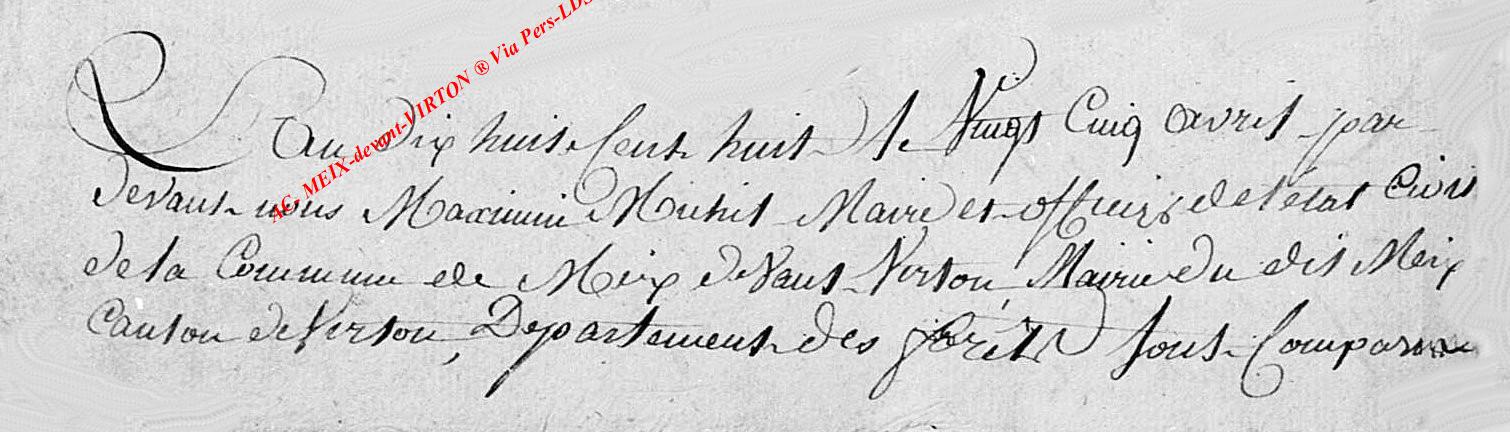 AC- MEIX-devant-VIRTON ® Via Pers-LDS
L'an dix huit Cent huit le Vingt Cinq avril par
devant nous Maximin Michel Maire et officier de l'état Civil
de la Commune de Meix devant Virton, Mairie du dit Meix
Canton de Virton, Departement des forêts sont Comparu